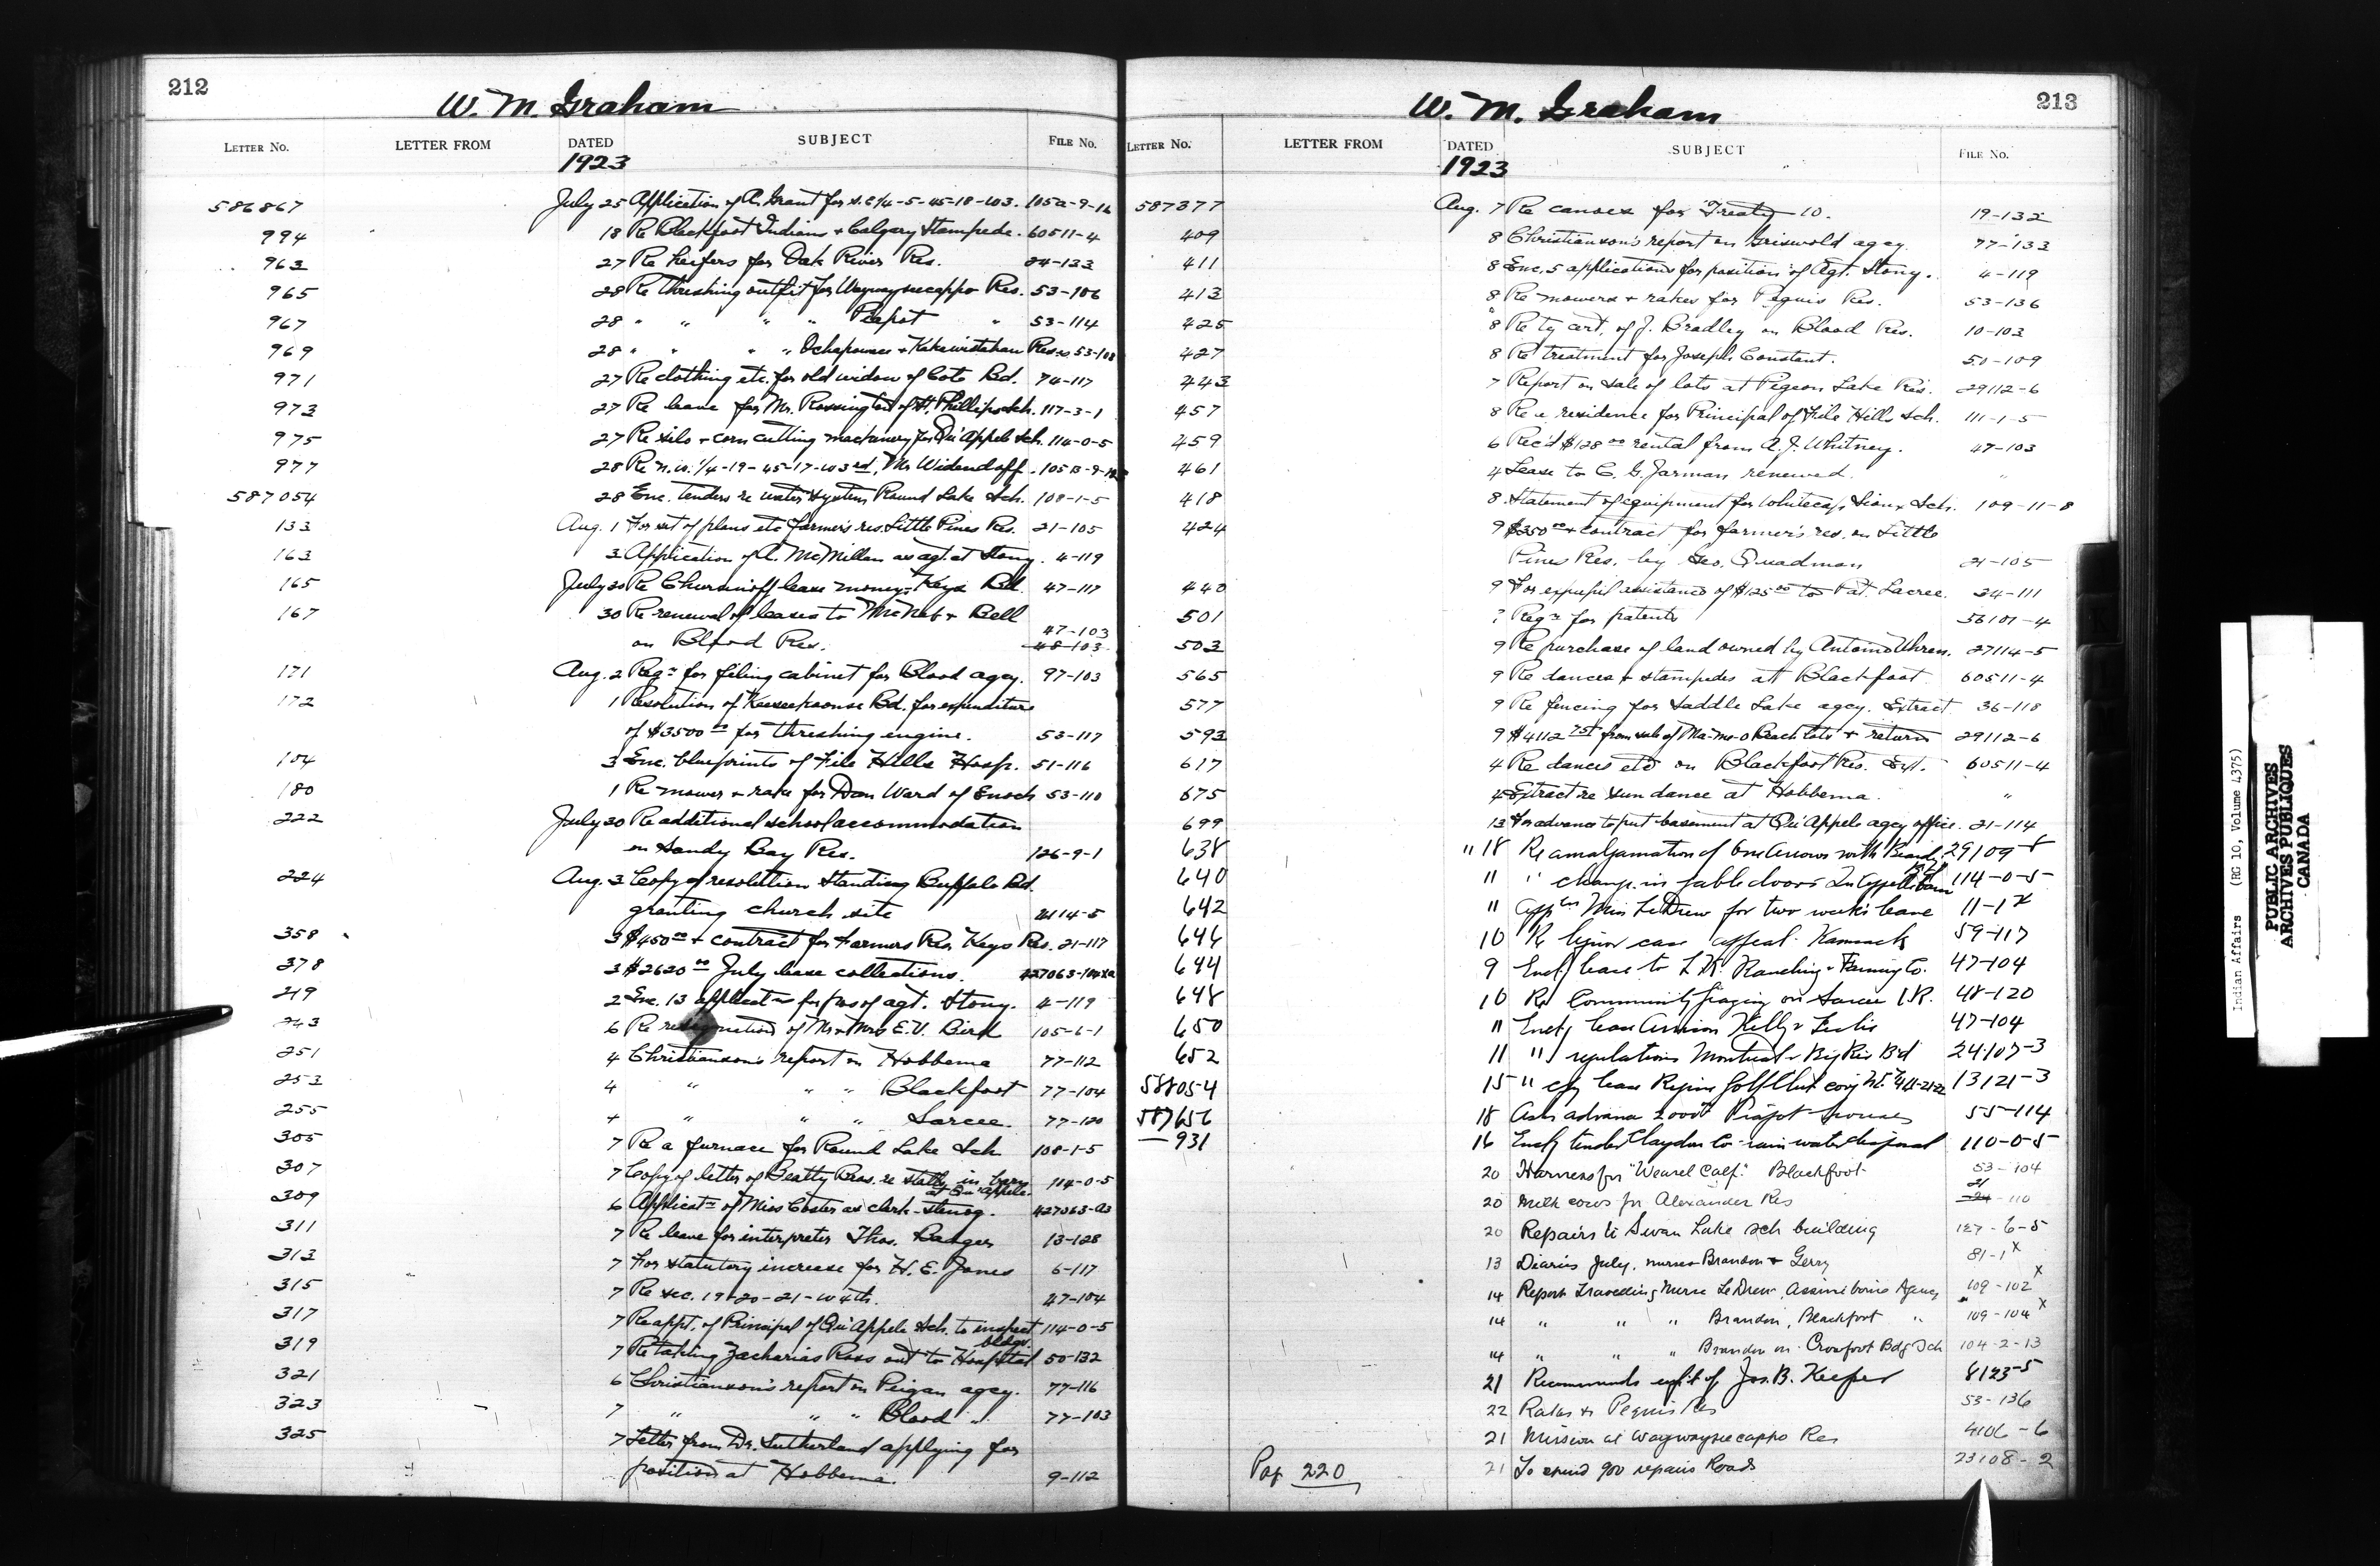 212
W. M. Graham
LETTER No. LETTER FROM DATED SUBJECT FILE No.
1923
586867 July 25 Application of A. Grant for s.e.1/4-5-45-18-w3. 105a-9-16
994 18 Re Blackfoot Indians + Calgary Stampede. 60511-4
963 27 Re heifers for Oak River Res. 24-133
965 28 Re threshing outfit for Waywayseecappo Res. 53-106
967 28 " " " " Piapot " 53-114
969 28 " " " " Ochapowace + Kakewistahaw Reses 53-108
971 27 Re clothing etc. for old widow of Cote Bd. 74-117
973 27 Re leave for Mr. Rossington of St. Phillips Sch. 117-3-1
975 27 Re silo + corn cutting machinery for Qu'Appele Sch. 114-0-5
977 28 Re n.w. 1/4-19-45-17-w3rd, Mr Widendoff. 105B-9-
587054 28 Enc. tenders re water system Round Lake Sch. 108-1-5
133 Aug. 1 For set of plans etc farmer's res. Little Pines Res. 21-105
163 3 Application of A. McMillan as agt. at Stony. 4-119
165 July 30 Re leave money Keys Bd. 47-117
167 30 Re renewal of leases to McNab + Bell
on Blood Res. 47-103
48-103
171 Aug. 2 Reqn for filing cabinet for Blood agcy. 97-103
172 1 Resolution of Keeseekoonse Bd. for expenditure
of $3500 00 for threshing engine. 53-117
104 3 Enc. blueprints of File Hills Hosp. 51-116
180 1 Re mower + rake for Dan Ward of Enoch 53-110
222 July 30 Re additional school accommodation
on Sandy Bay Res. 126-9-1
224 Aug. 3 Copy of resolution Standing Buffalo Bd.
granting church site 114-5
358 3 $450 00 + contract for Farmers Res. Keys Res. 21-117
378 3 $2620 00 July lease collections. 427063-
219 2 Enc. 13 applicatns for pos of agt. Stony. 4-119
243 6 Re resignation of Mr + Mrs E.V. Bird 105-6-1
251 4 Christianson's report on Hobbema 77-112
253 4 " " " Blackfoot 77-104
255 4 " " " Sarcee. 77-120
305 7 Re a furnace for Round Lake Sch. 108-1-5
307 7 Copy of letter of Beatty Bros. re stalls in barn
at Qu'Appele. 114-0-5
309 6 Applicatn of Miss Coster as clerk-stenog. 427063-a3
311 7 Re leave for interpreter Thos. Badger 13-128
313 7 For statutory increase for H. E. Jones 6-117
315 7 Re sec. 19+20-21-w4th. 47-104
317 7 Re appt. of Principal of Qu'Appele Sch. to inspect
bldgs. 114-0-5
319 7 Re taking Zacharias Ross out to Hospital 50-132
321 6 Christianson's report on Peigan agcy. 77-116
323 7 " " " Blood " 77-103
325 7 Letter from Dr. Sutherland applying for
position at Hobbema. 9-112
213
W. M. Graham
LETTER No. LETTER FROM DATED SUBJECT FILE No.
1923
587377 Aug. 7 Re canoes for Treaty 10. 19-132
409 8 Christianson's report on Griswold agcy. 77-133
411 8 Enc. 5 applications for position of Agt. Stony. 4-119
413 8 Re mowers + rakes for Peguis Res. 53-136
425 8 Re ty cert. of J. Bradley on Blood Res. 10-103
427 8 Re treatment for Joseph Constant. 50-109
443 7 Report on sale of lots at Pigeon Lake Res. 29112-6
457 8 Re a residence for Principal of File Hills Sch. 111-1-5
459 6 Rec'd $128 00 rental from A. J. Whitney. 47-103
461 4 Lease to C. G. Jarman renewed. "
418 8 Statement of equipment for Whitecap Sioux Sch. 109-11-8
424 9 $350 00 + contract for farmer's res. on Little
Pines Res. by Geo. Quadman 21-105
440 9 For assistance of $125 00 to Pat. Lacree. 24-111
501 ? Reqn for patents 56101-4
503 9 Re purchase of land owned by Antoine 27114-5
565 9 Re dances + stampedes at Blackfoot 60511-4
577 9 Re fencing for Saddle Lake agcy. Extract 36-118
593 9 $4112 from sale of Ma-me-o Beach lots + returns 29112-6
617 4 Re dances etc on Blackfoot Res. Ext. 60511-4
675 4 Extract re sun dance at Hobbema. "
699 13 For advance to put basement at Qu'Appele agcy office. 21-114
638 " 18 Re amalgamation of One Arrows with Beardy 29109-8
640 11 " change in gable doors Qu'Appelle barn 114-0-5
642 11 Appln Miss LeDrew for two weeks leave 11-1x
646 10 Re liquor case appeal. Kamsack 59-117
644 9 Encl lease to L.K. Ranching + Farming Co. 47-104
648 10 Re Community grazing on Sarcee I.R. 48-120
650 11 Encl lease Kelly + Leslie 47-104
652 11 " regulations Montreal + Big Riv Bd 24107-3
588054 15 " copy lease Regina Golf Club 13121-3
587656 18 Asks advance 2000 Piapot houses 55-114
— 931 16 Encl tender Claydon Co rain water disposal 110-0-5
20 Harness for "Weasel Calf." Blackfoot 53-104
20 Milk cows for Alexander Res 21
24-110
20 Repairs to Swan Lake sch building 127-6-5
13 Diaries July, nurses Brandon + Gerry 81-1x
14 Report Travelling Nurse LeDrew Assiniboine Agency 109-102x
14 " " " Brandon, Blackfoot " 109-104x
14 " " " Brandon on Crowfoot Bdg Sch 104-2-13
21 Recommends of Jos. B. Keeper 8123-5
22 Rakes for Peguis Res 53-136
21 Mission at Waywayseecappo Res 4106-6
21 To spend 900 repairs Roads 23108-2
Pag 220
Indian Affairs (RG 10, Volume 4375)
PUBLIC ARCHIVES
ARCHIVES PUBLIQUES
CANADA